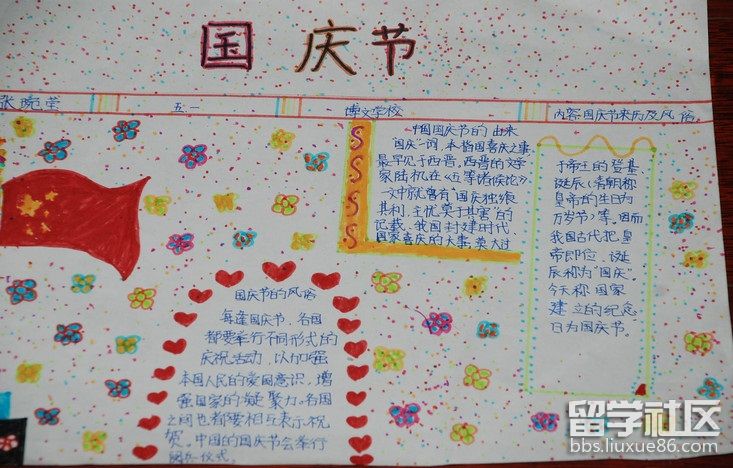 国庆节
张宛莹 五一 博文学校 内容:国庆节来历及风俗
中国国庆节的由来
“国庆”一词,本指国喜庆之事
最早见于西晋,西晋的文学
家陆机在《五等诸侯论》
一文中就曾有“国庆独飨
其利,主忧莫于其害”的
记载,我国封建时代、
国家喜庆的大事,莫大过
于帝王的登基、
诞辰(清朝称
皇帝的生日为
万岁节)等,因而
我国古代把皇
帝即位、诞
辰称为“国庆”。
今天称国家
建立的纪念
日为国庆节。
国庆节的风俗
每逢国庆节,各国
都要举行不同形式的
庆祝活动,以加强
本国人民的爱国意识,增
强国家的凝聚力。各国
之间也都要相互表示祝
贺。中国的国庆节会举行
阅兵仪式。
留学社区
bbs.liuxue86.com